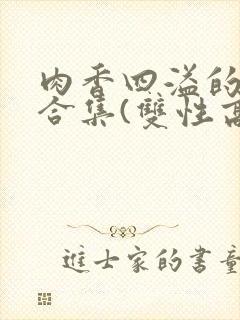 肉香四溢的
合集(雙性高
進士家的書童